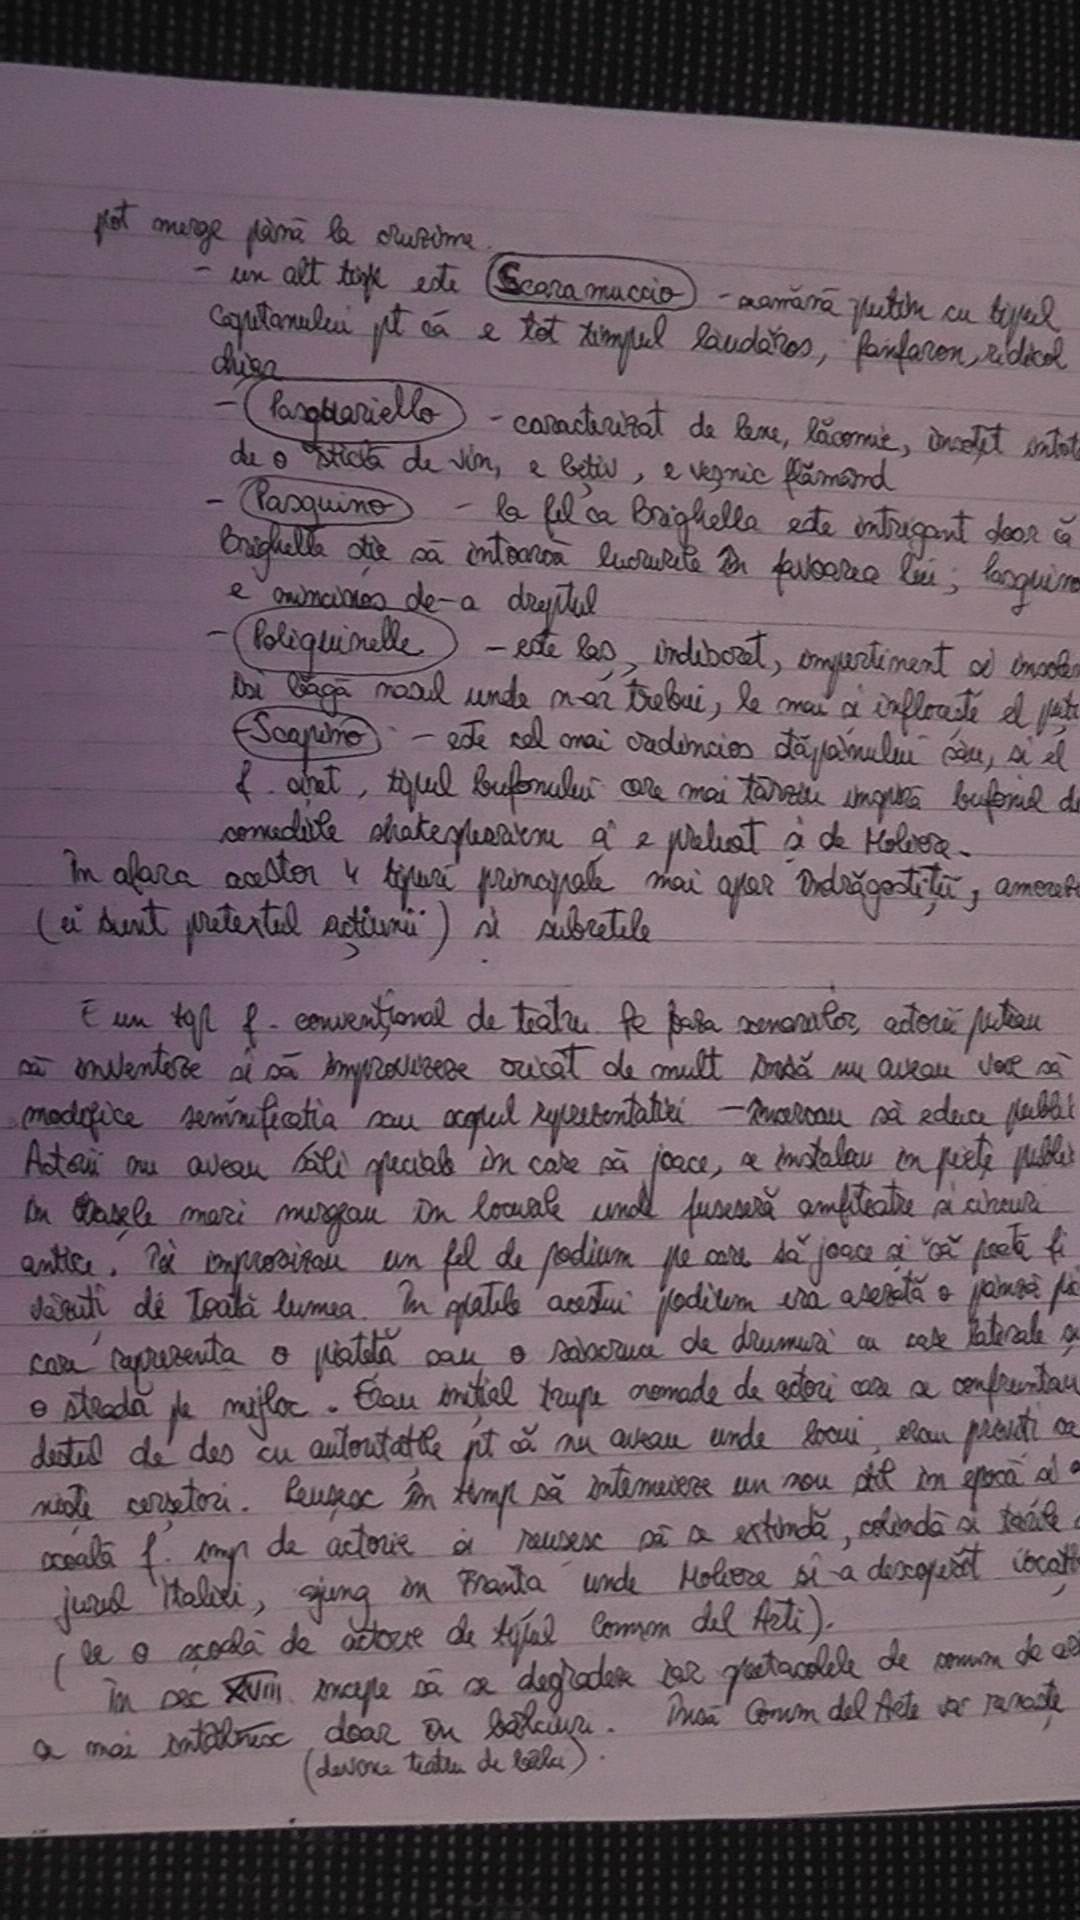 pot merge până la cruzime.
- un alt tip este Scaramuccio - seamănă puțin cu tipul
Capitanului pt că e tot timpul lăudăros, fanfaron, ridicol
chiar
- Pasquariello - caracterizat de lene, lăcomie, însoțit
de o sticlă de vin, e bețiv, e veșnic flămând
- Pasquino - la fel ca Brighella este intrigant doar că
Brighella știe să întoarcă lucrurile în favoarea lui; Pasquino
e mincinos de-a dreptul
- Poliquinelle - este laș, indiscret, impertinent și
își bagă nasul unde n-ar trebui, le mai și înflorește el
- Scapino - este cel mai credincios stăpânului său, și el
f. șiret, tipul bufonului care mai târziu inspiră bufonul
comediile shakespeariene și e preluat și de Moliere.
În afara acestor 4 tipuri principale mai apar îndrăgostiții,
(ei sunt pretextul acțiunii) și subretele
E un tip f. convențional de teatru. Pe baza scenariilor, actorii puteau
să inventeze și să improvizeze oricât de mult însă nu aveau voie să
modifice semnificația sau scopul reprezentației - încercau să educe
Actorii nu aveau săli speciale în care să joace, se instalau în piețe
În orașele mari mergeau în locurile unde fuseseră amfiteatre și circuri
antice. Își improvizau un fel de podium pe care să joace și să poată fi
văzuți de toată lumea. În spatele acestui podium era așezată o pânză
care reprezenta o piațetă sau o răscruce de drumuri cu case laterale
o stradă pe mijloc. Erau inițial trupe nomade de actori care se confruntau
destul de des cu autoritățile pt că nu aveau unde locui, erau priviți ca
niște cerșetori. Reușesc în timp să întemeieze un nou stil în epocă și o
școală f. imp de actorie și reușesc să se extindă, colindă și țările
jurul Italiei, ajung în Franța unde Moliere și-a descoperit
(la o școală de actorie de tipul Comm del Arti).
În sec XVIII începe să se degradeze iar spectacolele de comm de
se mai întâlnesc doar în bâlciuri. Însă Comm del Arte va renaște
(devine teatru de bâlci).